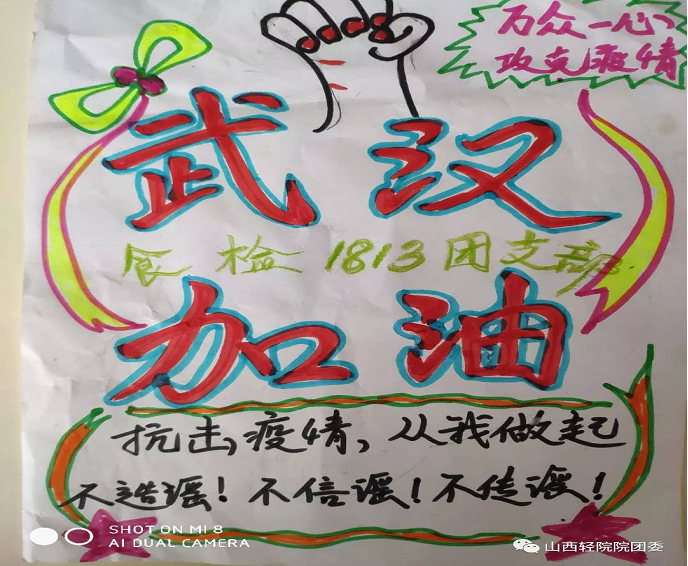 万众一心
攻克疫情
武汉
食检1813团支部
加油
抗击,疫情,从我做起
不造谣！不信谣！不传谣！
SHOT ON MI 8
AI DUAL CAMERA
山西轻院院团委